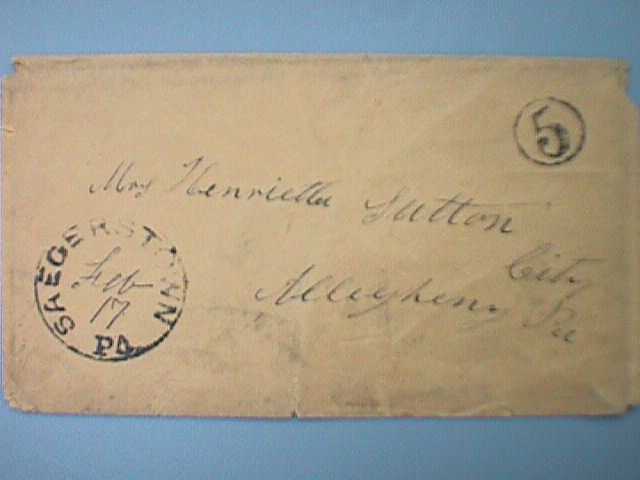 5
Mrs Henrietta Sutton
Allegheny City
Pa
SAEGERSTOWN
Feb
17
PA